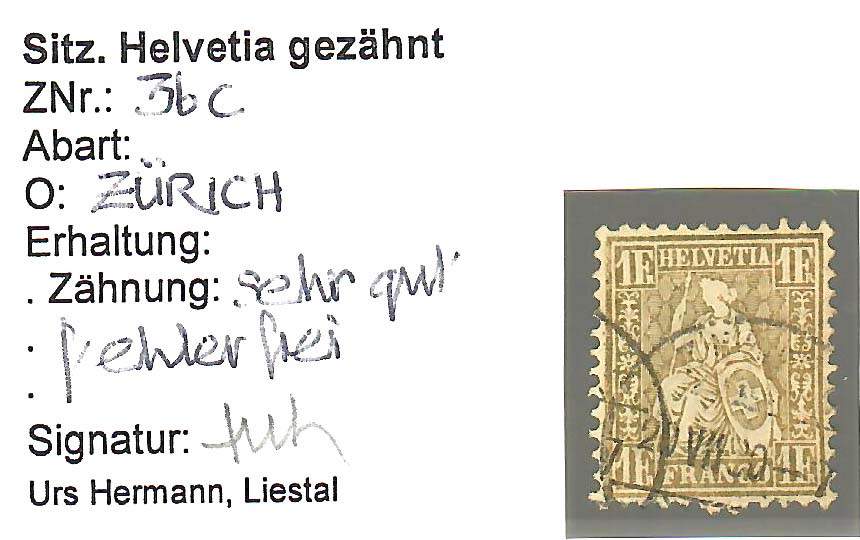 Sitz. Helvetia gezähnt
ZNr.: 36 c
Abart:
O: ZÜRICH
Erhaltung:
. Zähnung: sehr gut
. fehlerfrei
.
Signatur:
Urs Hermann, Liestal
1F HELVETIA 1F
1F FRANCO 1F
VII